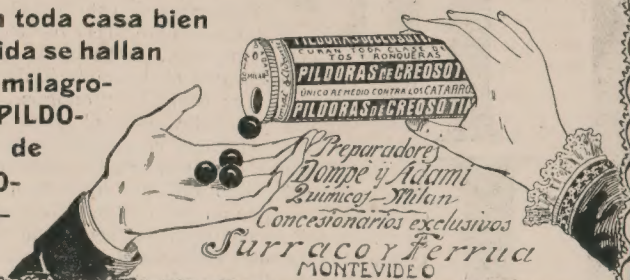 n toda casa bien
ida se hallan
milagro-
PILDO-
de
O-
PILDORAS DE CREOSOTI
CURAN TODA CLASE DE
TOS Y RONQUERAS
PILDORAS DE CREOSOTI
UNICO REMEDIO CONTRA LOS CATARRO
PILDORAS DE CREOSOTIN
MILAN
Preparadores
Dompé y Adami
Quimicos - Milan
Concesionarios exclusivos
Surraco y Ferrua
MONTEVIDEO